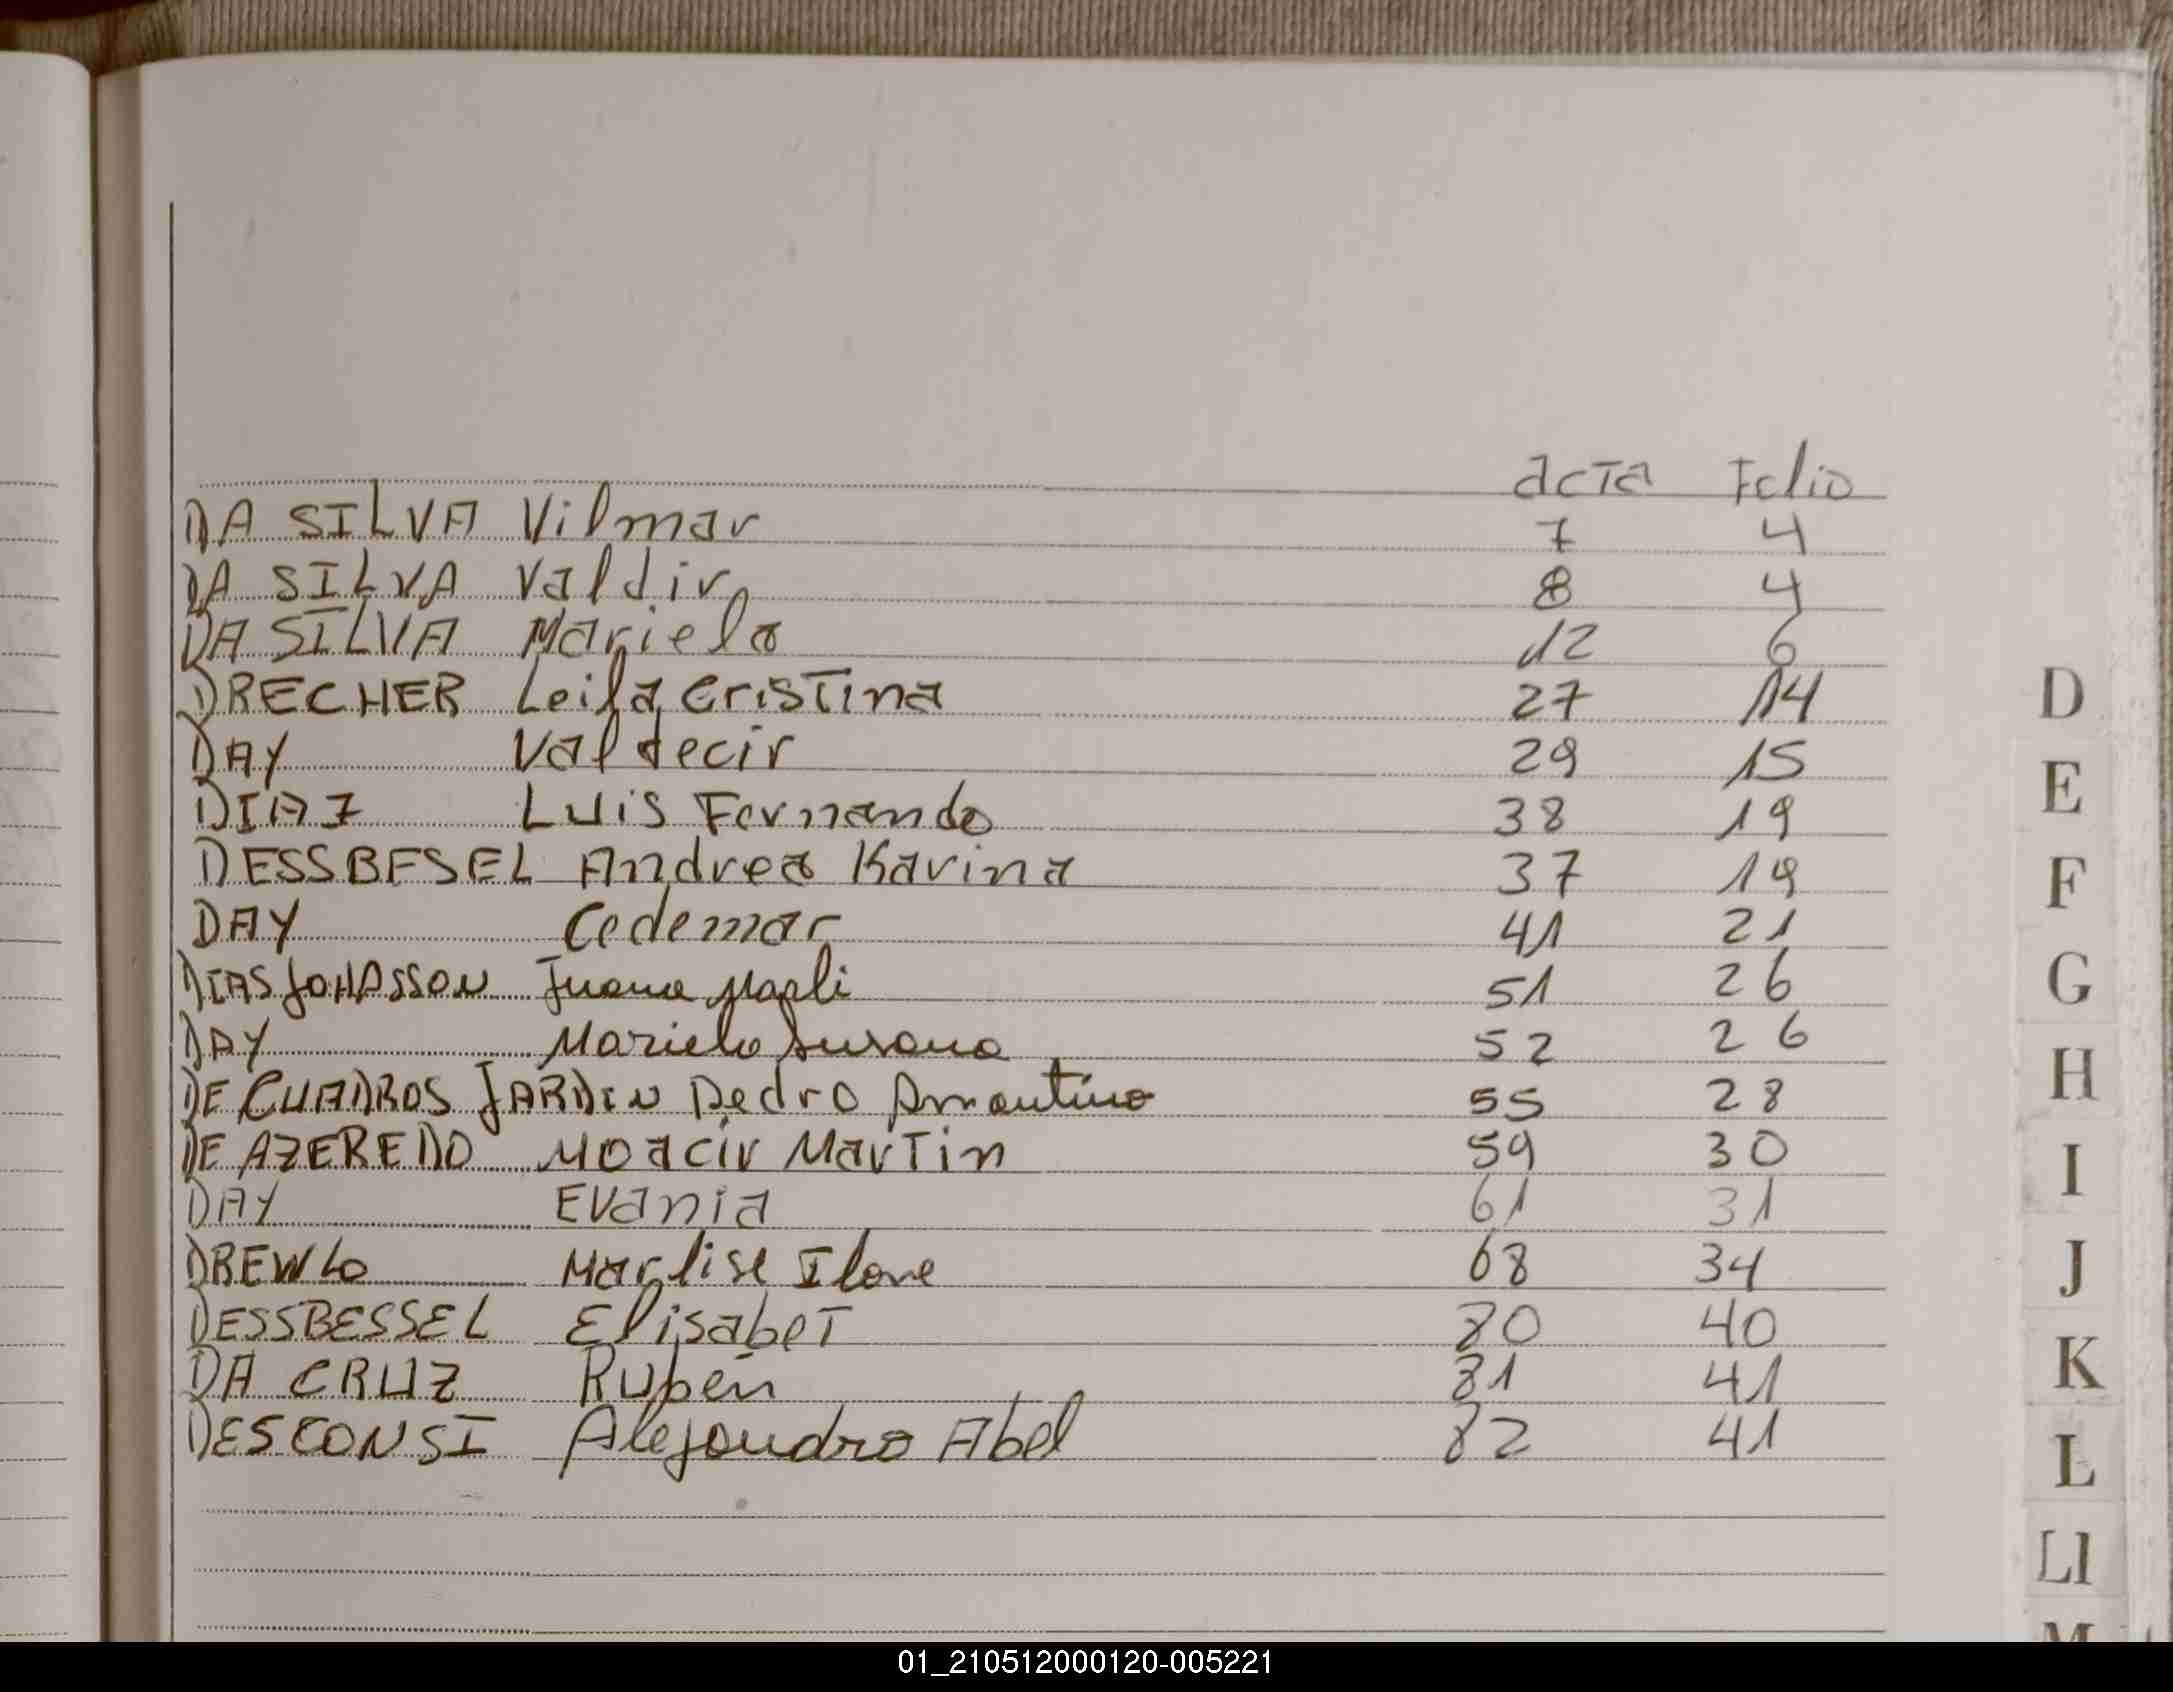 acta Folio
DA SILVA Vilmar 7 4
DA SILVA Valdir 8 4
DA SILVA Mariela 12 6
DRECHER Leila Cristina 27 14
DAY Valdecir 29 15
DIAZ Luis Fernando 38 19
DESSBESEL Andrea Karina 37 19
DAY Cedemar 41 21
DIAS JOHASSON Juana Marli 51 26
DAY Mariela Susana 52 26
DE CUADROS JARDIN Pedro Amantino 55 28
DE AZEREDO Moacir Martin 59 30
DAY Evania 61 31
DREWLO Marlise Ilone 68 34
DESSBESSEL Elisabet 80 40
DA CRUZ Rubén 81 41
DESCONSI Alejandro Abel 82 41
D
E
F
G
H
I
J
K
L
Ll
M
01_210512000120-005221